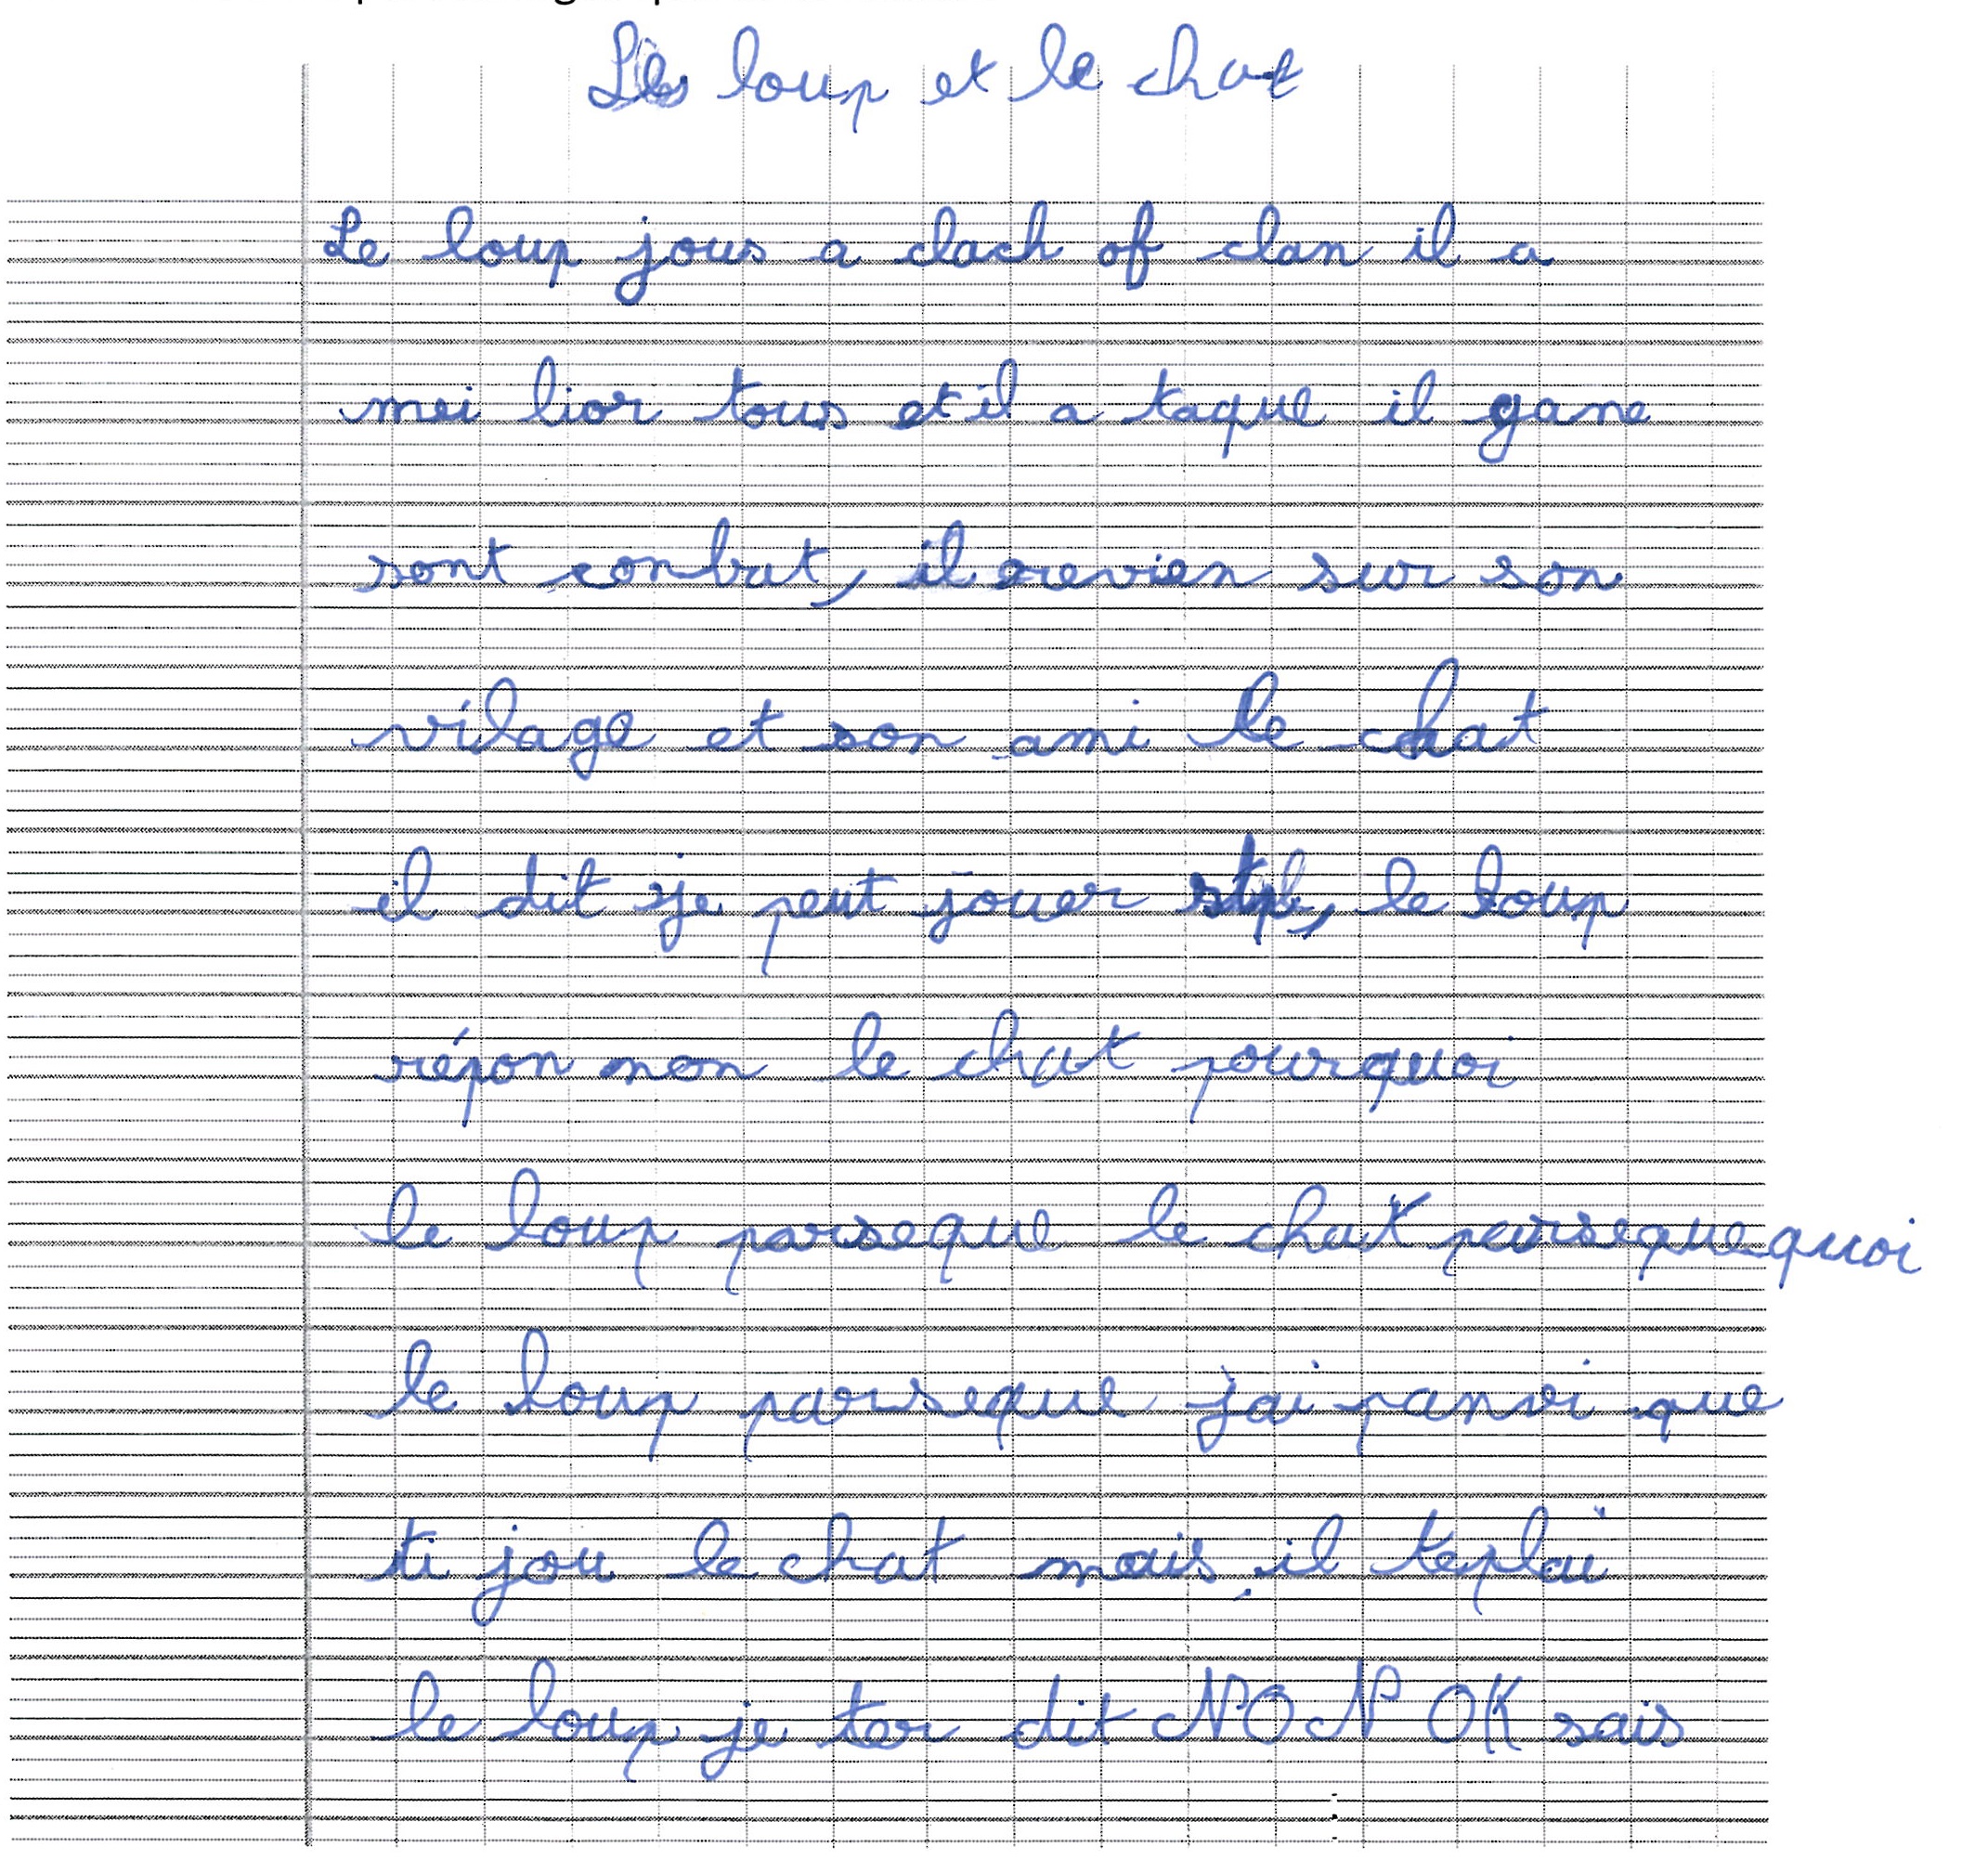 Le loup et le chat
Le loup jous a clach of clan il a
mei lior tous et il a taque il gane
sont conbat, il revien sur son
vilage et son ami le chat
il dit je peut jouer stp, le loup
répon non le chat pourquoi
le loup parseque le chat parsequequoi
le loup parseque jai panvi que
ti jou le chat mais, il teplai
le loup je ter dit NON OK sais